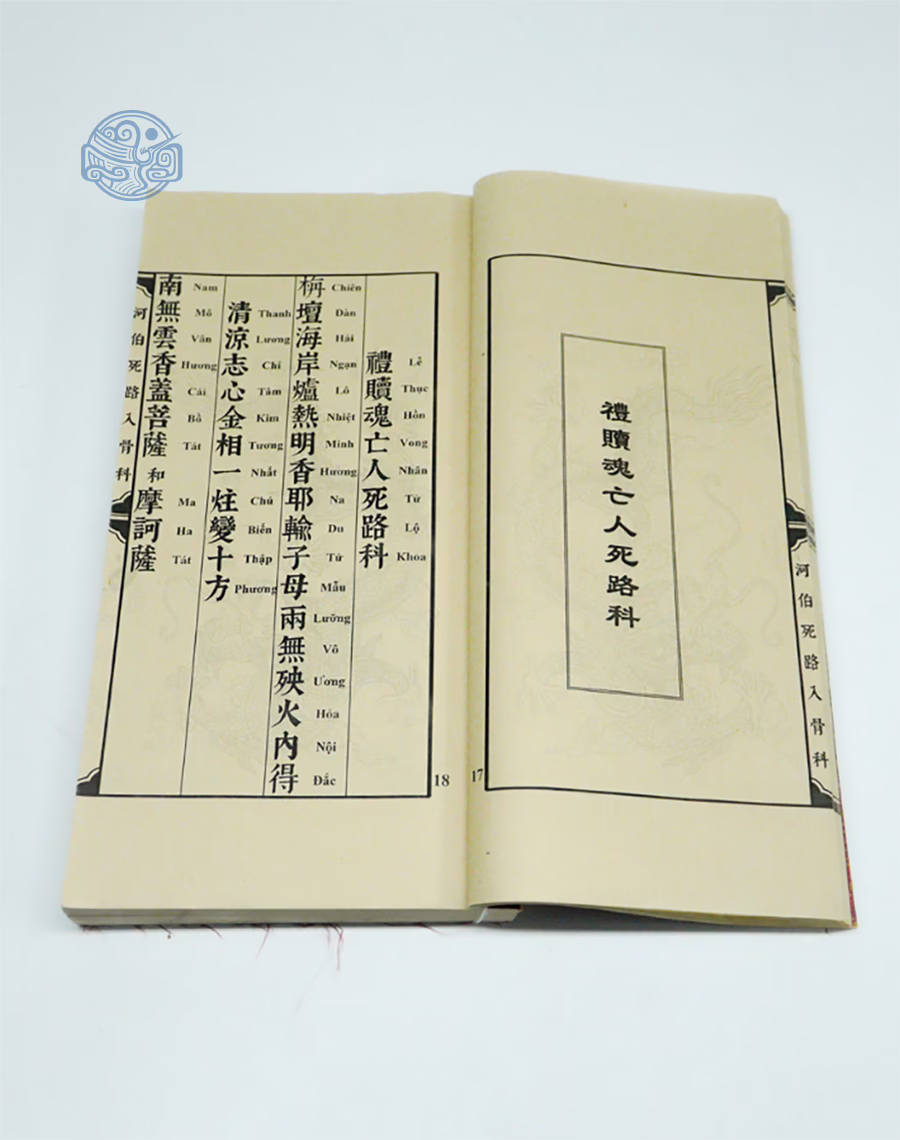 禮贖魂亡人死路科
河伯死路入骨科
17
禮贖魂亡人死路科
Lễ Thục Hồn Vong Nhân Tử Lộ Khoa
栴壇海岸爐熱明香耶輸子母兩無殃火內得
Chiên Đàn Hải Ngạn Lô Nhiệt Minh Hương Na Du Tử Mẫu Lưỡng Vô Ương Hỏa Nội Đắc
清涼志心金相一炷變十方
Thanh Lương Chí Tâm Kim Tương Nhất Chú Biến Thập Phương
南無雲香蓋菩薩和摩訶薩
Nam Mô Vân Hương Cái Bồ Tát Ma Ha Tát
河伯死路入骨科
18